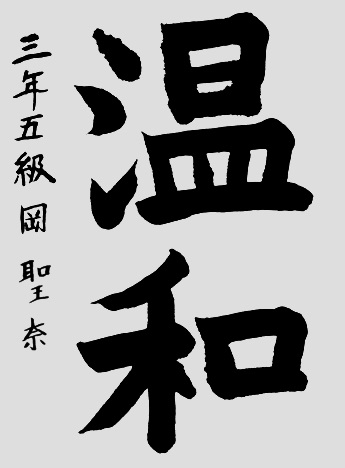 温和
三年五級岡聖奈